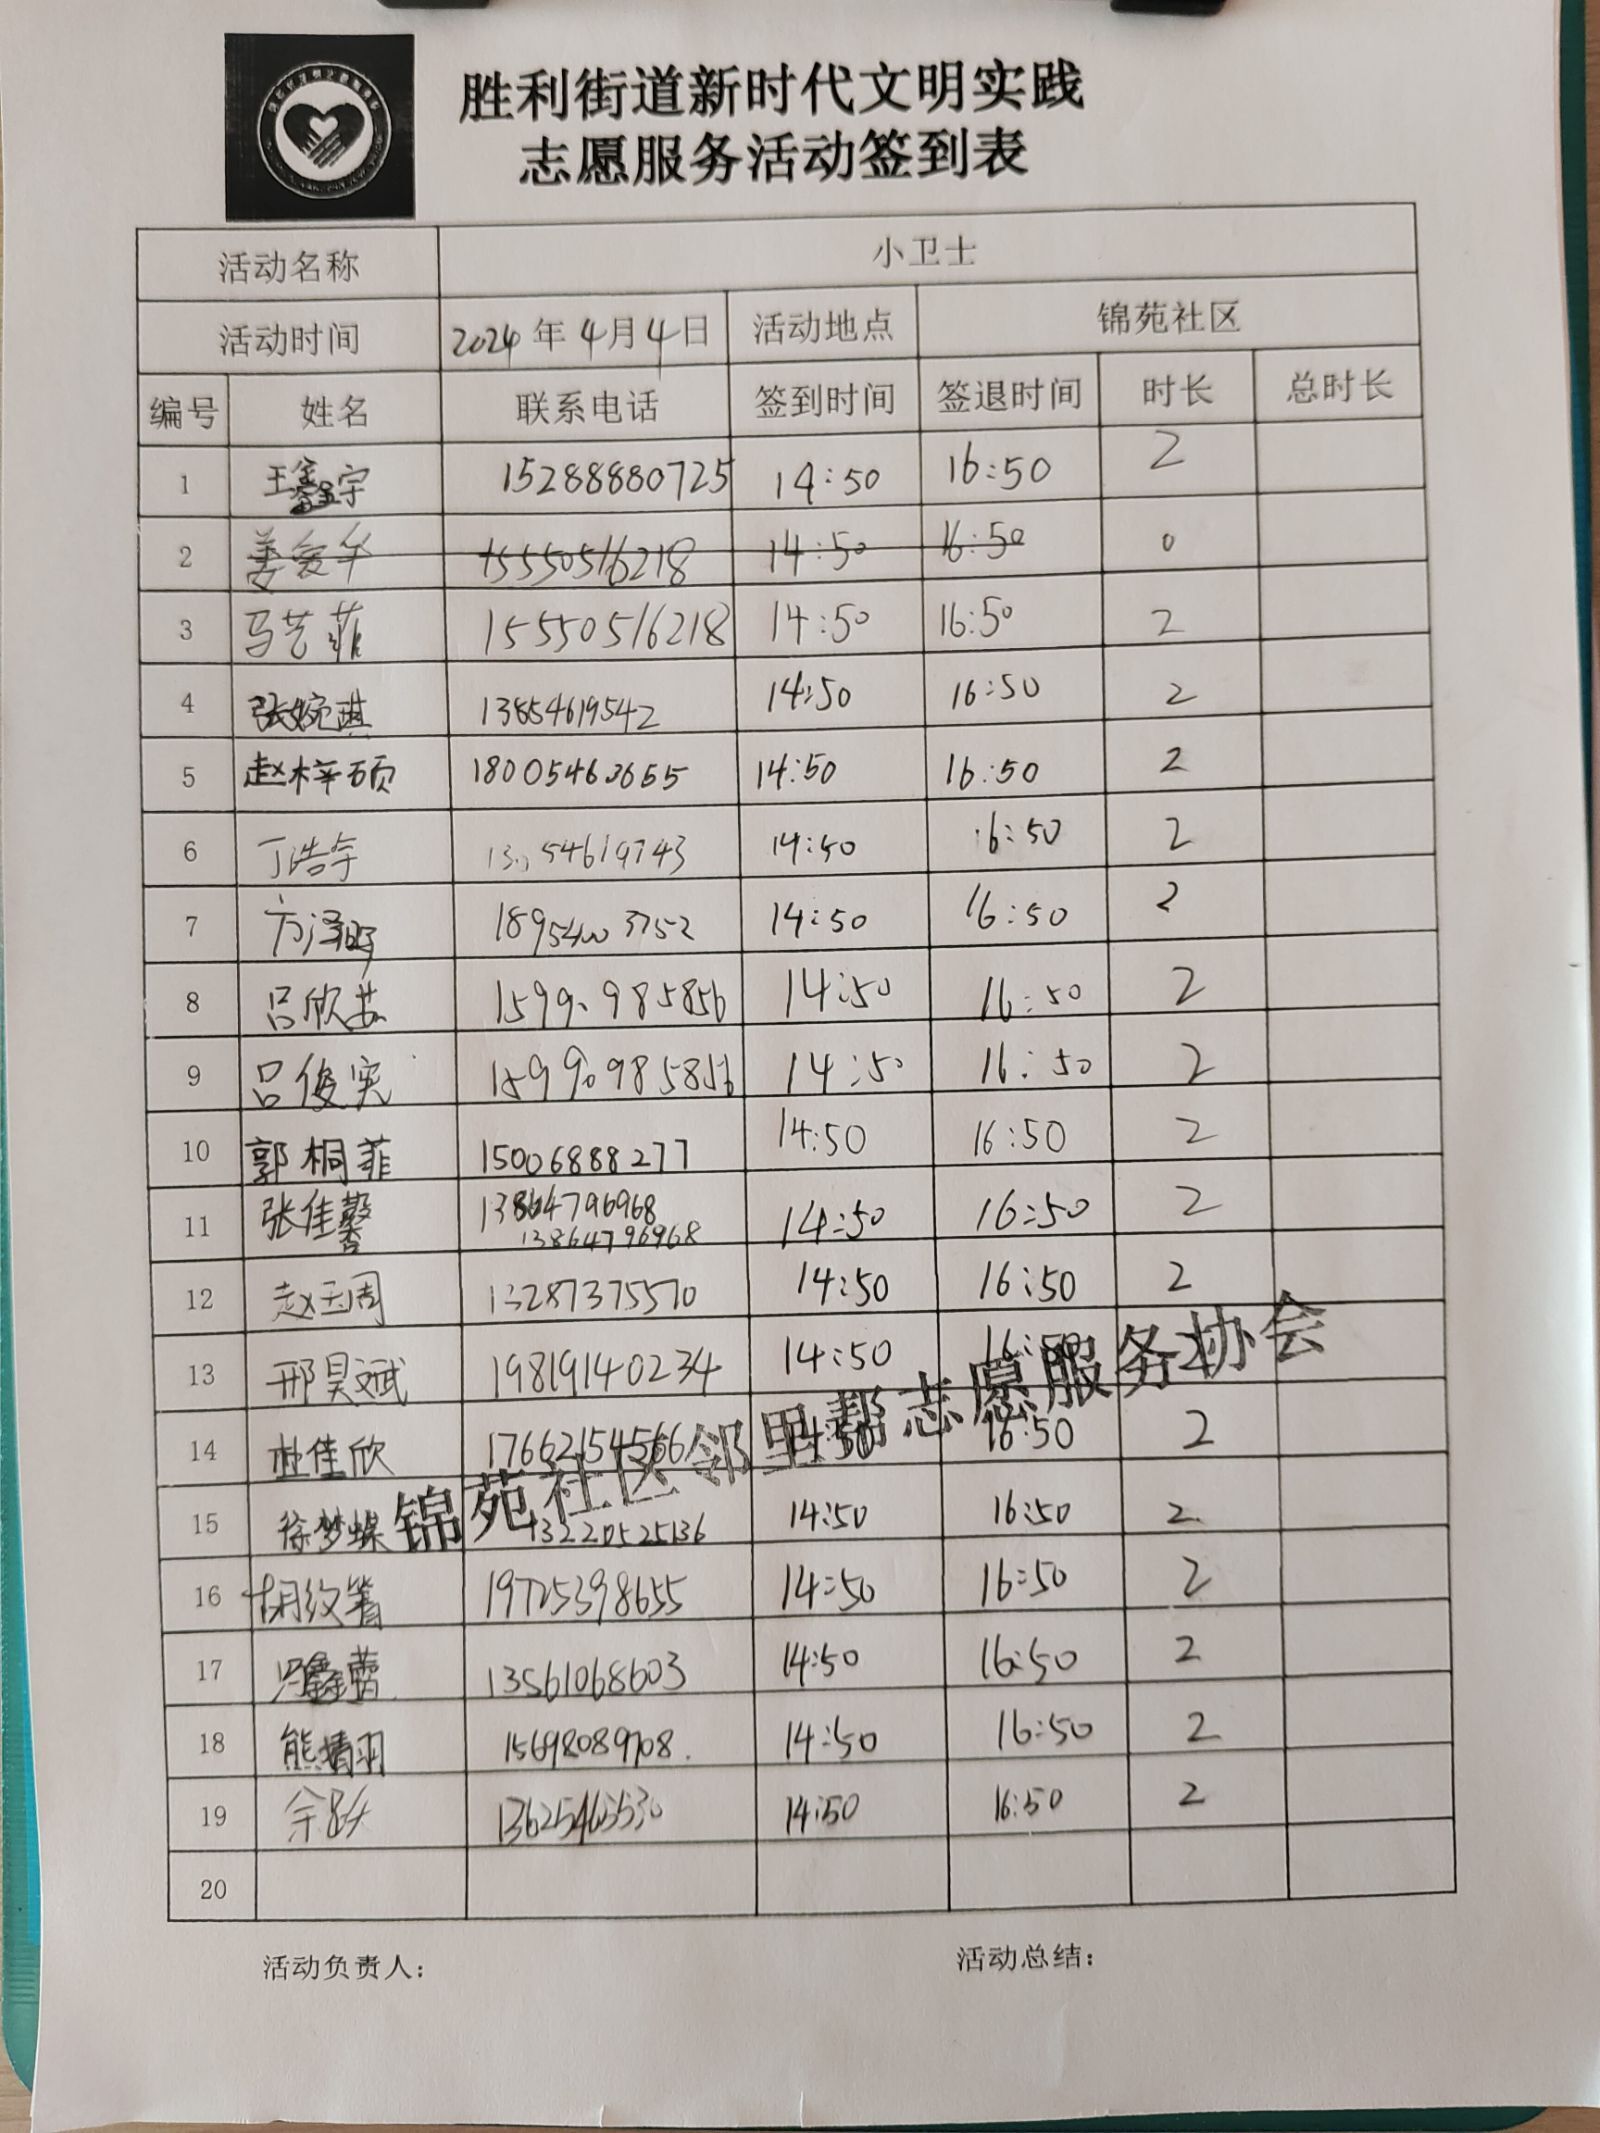 胜利街道新时代文明实践
志愿服务活动签到表
活动名称 小卫士
活动时间 2024年4月4日 活动地点 锦苑社区
编号 姓名 联系电话 签到时间 签退时间 时长 总时长
1 王鑫宇 15288880725 14:50 16:50 2
2 姜爱华 15550516218 14:50 16:50 0
3 马艺菲 15550516218 14:50 16:50 2
4 张婉琪 13854619542 14:50 16:50 2
5 赵梓硕 18005463655 14:50 16:50 2
6 丁浩宇 14:50 16:50 2
7 14:50 16:50 2
8 吕欣茹 15990985856 14:50 16:50 2
9 吕俊宪 15990985856 14:50 16:50 2
10 郭桐菲 15006888277 14:50 16:50 2
11 张佳馨 13864796968 14:50 16:50 2
13864796968
12 赵玉周 13287375570 14:50 16:50 2
13 邢昊斌 19819140234 14:50 16:50 2
14 杜佳欣 17662154566 14:50 16:50 2
锦苑社区邻里帮志愿服务协会
15 徐梦蝶 13220525136 14:50 16:50 2
16 14:50 16:50 2
17 13561068603 14:50 16:50 2
18 熊婧羽 15698089708 14:50 16:50 2
19 14:50 16:50 2
20
活动负责人: 活动总结: